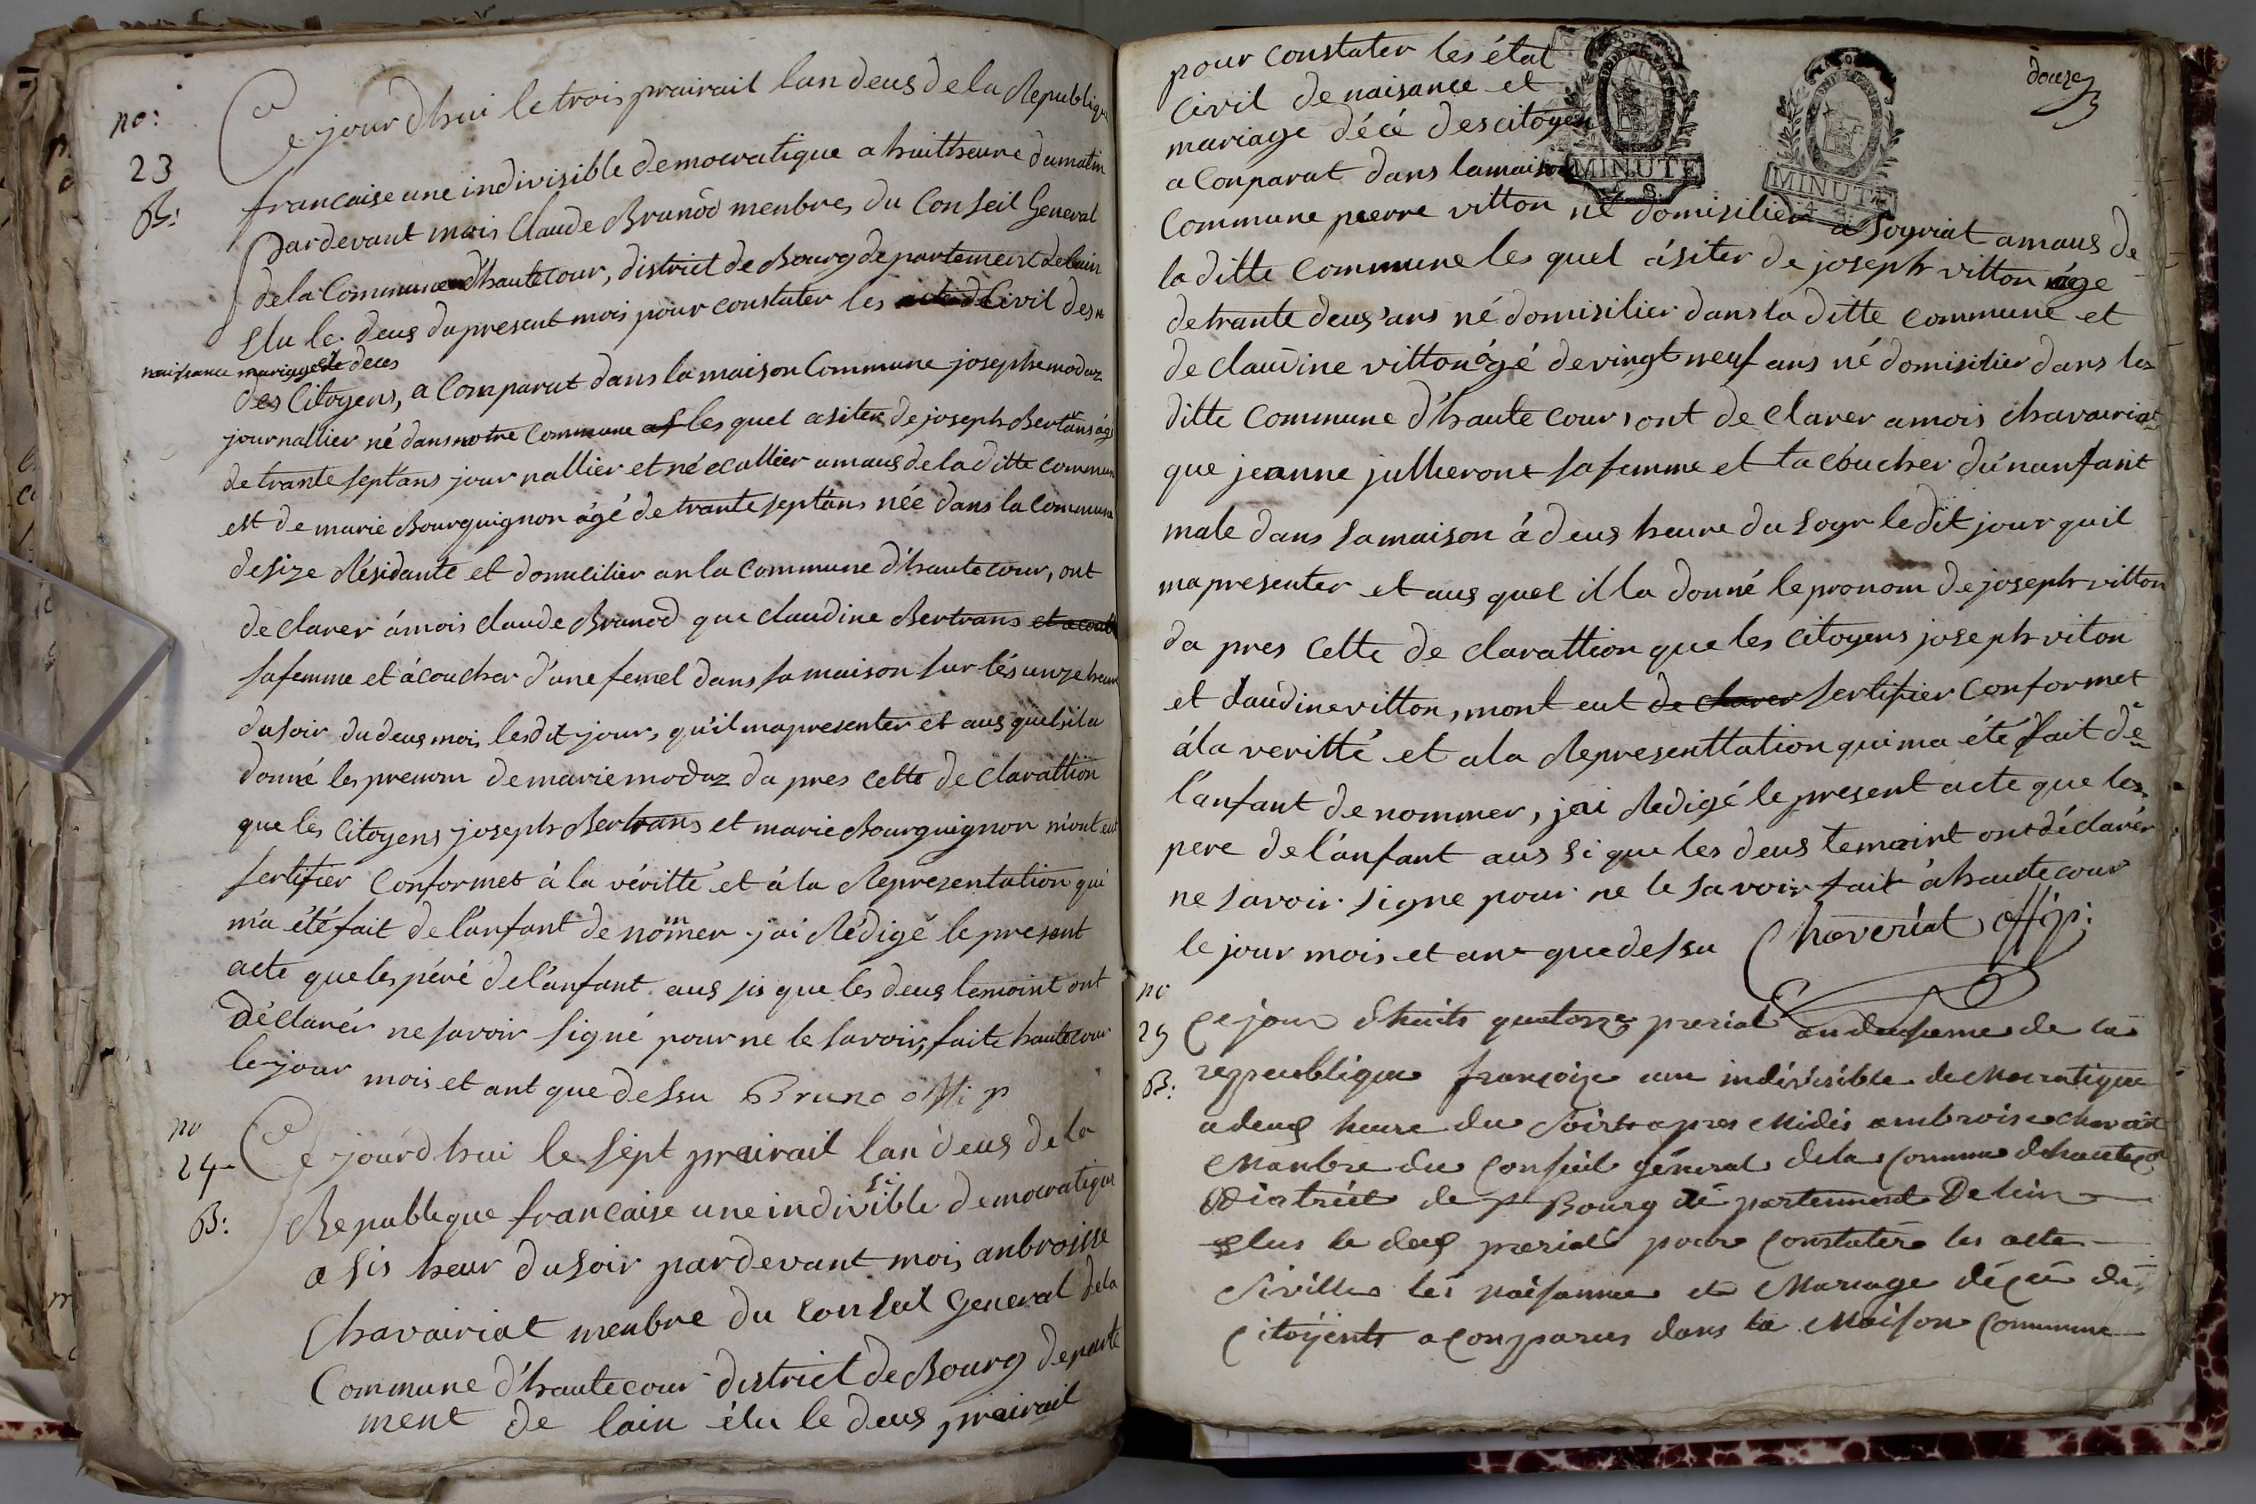 no:
23
B:
Ce jourdhui le trois prairail lan deus de la Republique
francaise une indivisible democratique a huit heure du matin
pardevant mois Claude Brunod menbres du Conseil General
de la Commune d'hautecour, district de Bourg departement de lain
élu le deus du present mois pour constater les acte de Civil des
naissance mariage et deces
des Citoyens, a Comparut dans la maison Commune josephe modaz
journallier né dans notre Commune et les quel asiter de joseph Bertrans agé
de trante sept ans journallier et né ecallier amaus de la ditte commune
est de marie Bourguignon agé de trante sept ans née dans la Commune
de size Résidante et domicilier an la Commune d'hautecour, ont
de clarer á mois claude Brunod que claudine Bertrans et acouch
sa femme et ácoucher d'une femel dans sa maison sur lés unze heure
du soir du deus mois, lesdit jour, qu'il ma presenter et aus quel il a
donné les prenom de marie modaz da pres cette de clarattion
que les Citoyens joseph Bertrans et marie Bourguignon m'ont eut
sertifier Conformet à la véritté et à la Representation qui
m'a été fait de l'anfant de nommer j'ai Rédigé le present
acte que les péré de l'anfant aus sis que les deus temoint ont
déclarér ne savoir signé pour ne le savoir, faite hautecour
le jour mois et ant que dessu Bruno offi p
no
24
B:
Ce jourd'hui le sept prairail lan deus de la
Republeque francaise une indivisible democratique
a sis heur du soir pardevant mois anbroisse
Chavairiat menbre du Conseil General de la
Commune d'hautecour district de Bourg departe
ment de lain élu le deus prairail
douze
MINUTE
MINUTE
pour constater les état
Civil de naisance et
mariage décé des citoyen
a Conparut dans la maison
Commune pierre vitton né domisilier a Soyriat amaus de
la ditte Commune les quel ásiter de joseph vitton áge
de trante deus ans né domisilier dans la ditte commune et
de claudine vitton ágé de vingt neuf ans né domisilier dans la
ditte Commune d'haute cour, ont de clarer a mois chavairiat
que jeanne jullieront sa femme et ta coucher du'nanfant
male dans sa maison á deus heure du soyr ledit jour quil
ma presenter et aus quel il la donné le pronom de joseph vitton
da pres cette de clarattion que les citoyens joseph viton
et claudine vitton, mont eut de clarer sertifier Conformet
á la veritté et a la Representtation qui ma été fait de
l'anfant de nommer, jai Redigé le present acte que les
pere de l'anfant aus si que les deus temoint ont déclarér
ne savoir signe pour ne le savoir fait á hautecour
le jour mois et an que dessu Chaveriat offip:
no
25
B:
Ce jour dhuits quatorze prerial an deuseme de la
reppublique françoize une indivisible democratique
a deus heure du Soir apres Midis ambroise chavairiat
Manbre du Conseil géneral dela Commune dhautecour
district de Bourg dé partement De lain
elus le deus prerial pour Constatére les acte
Siville les naisanne et Mariage déçée des
Citoÿents a Conparus dans la Maison Commune